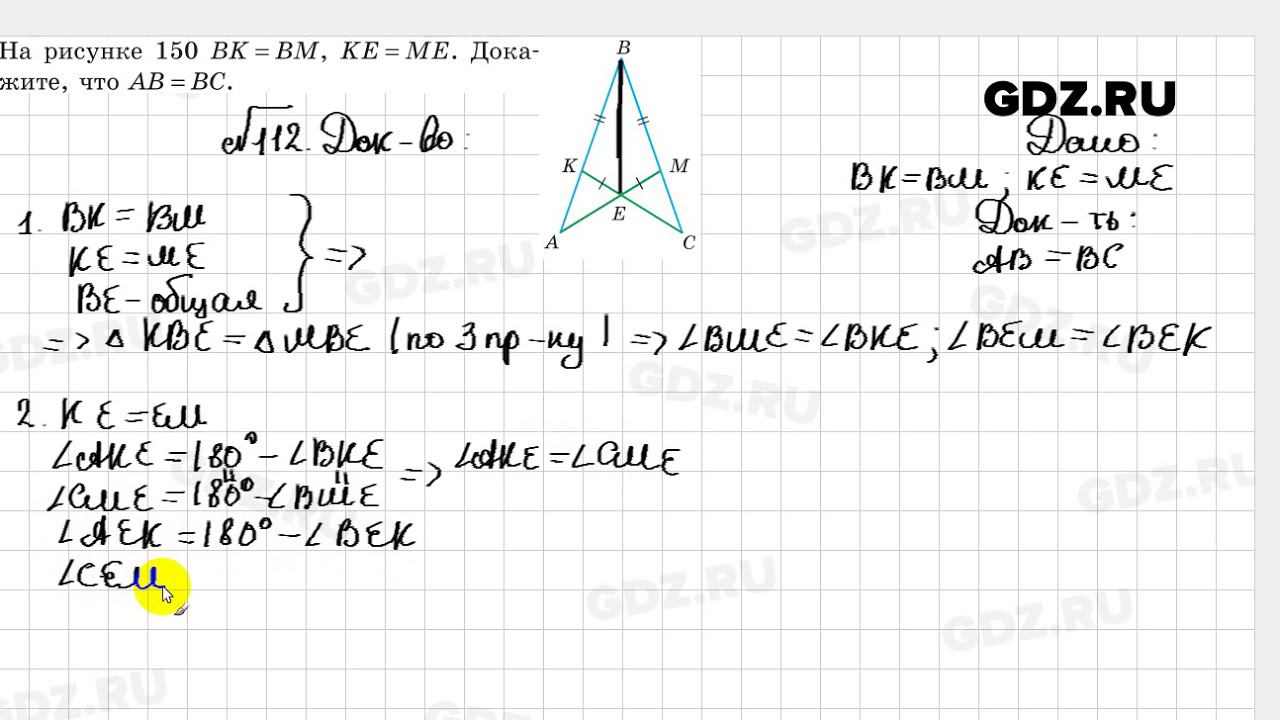 На рисунке 150 BK = BM, KE = ME. Дока-
жите, что AB = BC.
GDZ.RU
№112. Док-во:
Дано:
BK=BM; KE=ME
Док-ть:
AB=BC
B
K
M
E
A
C
1. BK = BM
KE = ME
BE - общая
=>
=> △ KBE = △ MBE (по 3 пр-ку) => ∠BME = ∠BKE; ∠BEM = ∠BEK
2. KE = EM
∠AKE = 180° - ∠BKE
=> ∠AKE = ∠CME
∠CME = 180° - ∠BME
∠AEK = 180° - ∠BEK
∠CEM
GDZ.RU
GDZ.RU
GDZ.RU
GDZ.RU
GDZ.RU
GDZ.RU
GDZ.RU
GDZ.RU
GDZ.RU
GDZ.RU
GDZ.RU